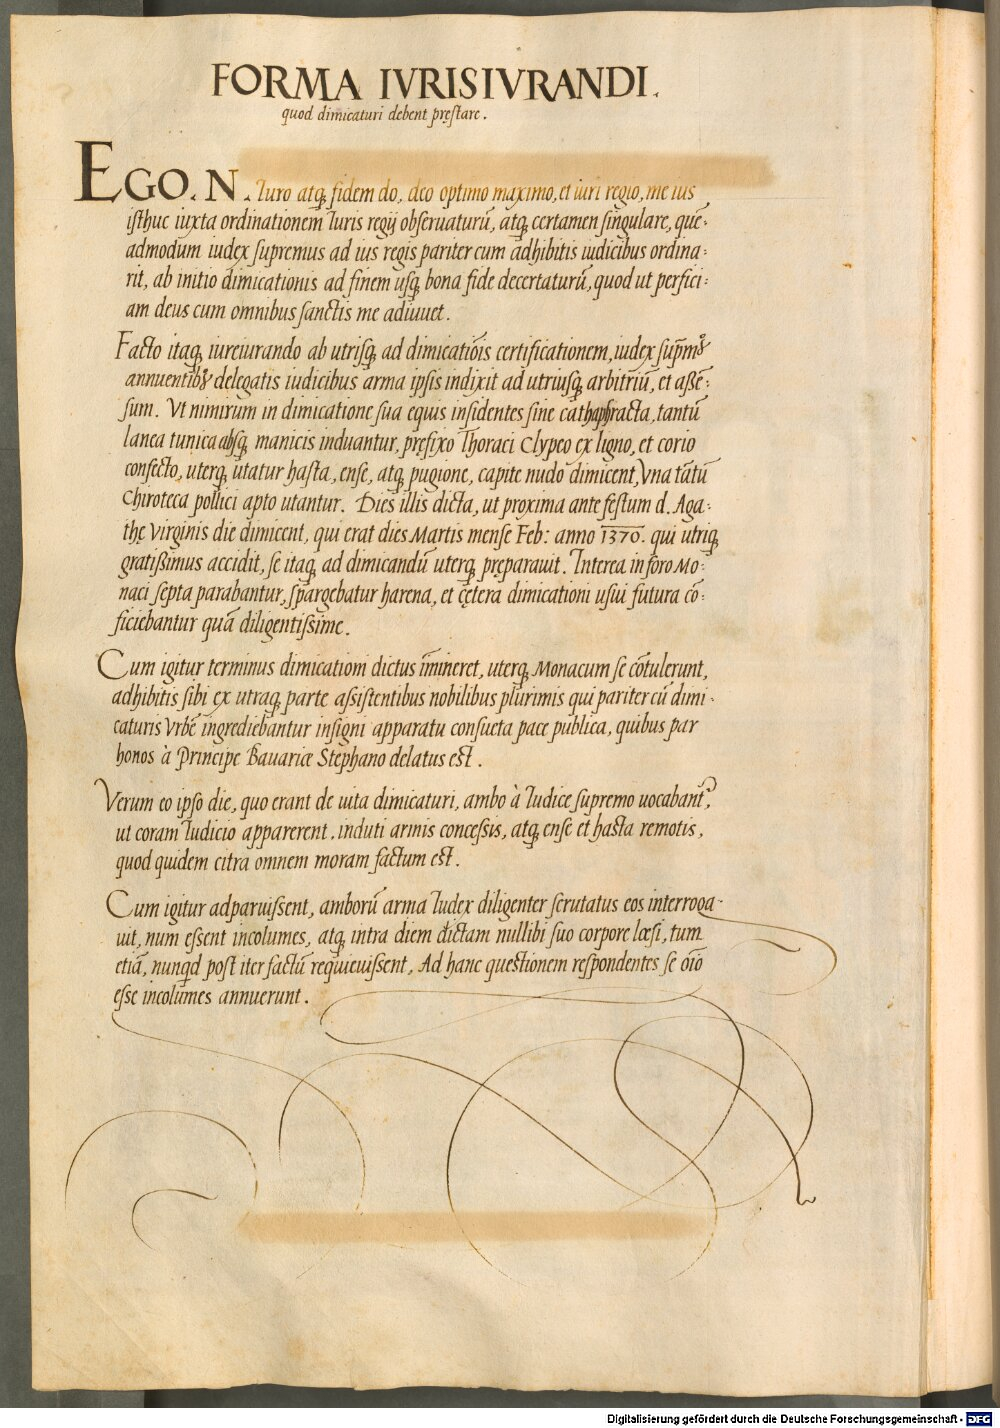 FORMA IVRISIVRANDI.
quod dimicaturi debent pręstare.
EGO. N. Iuro atq; fidem do, deo optimo maximo, et iuri regio, me ius
isthuc iuxta ordinationem Iuris regij obseruaturũ, atq; certamen singulare, quẽ-
admodum iudex supremus ad ius regis pariter cum adhibitis iudicibus ordina-
rit, ab initio dimicationis ad finem usq; bona fide decertaturũ, quod ut perfici-
am deus cum omnibus sanctis me adiuuet.
Facto itaq; iureiurando ab utrisq; ad dimicatiõis certificationem, iudex sup̃mꝰ
annuentibꝰ delegatis iudicibus arma ipsis indixit ad utriusq; arbitriũ, et assẽ-
sum. Vt nimirum in dimicatione sua equis insidentes sine cathaphracta, tantũ
lanea tunica absq; manicis induantur, pręfixo Thoraci Clypeo ex ligno, et corio
confecto, uterq; utatur hasta, ense, atq; pugione, capite nudo dimicent, Vna tãtũ
Chiroteca pollici apto utantur. Dies illis dicta, ut proxima ante festum d. Aga-
thę Virginis die dimicent, qui erat dies Martis mense Feb: anno 1370. qui utriq;
gratissimus accidit, se itaq; ad dimicandũ uterq; pręparauit. Interea in foro Mo-
naci septa parabantur, spargebatur harena, et cętera dimicationi usui futura cõ-
ficiebantur quã diligentissime.
Cum igitur terminus dimicationi dictus im̃ineret, uterq; Monacum se cõtulerunt,
adhibitis sibi ex utraq; parte assistentibus nobilibus plurimis qui pariter cũ dimi-
caturis Vrbẽ ingrediebantur insigni apparatu consueta pace publica, quibus par
honos à Principe Bauariæ Stephano delatus est.
Verum eo ipso die, quo erant de uita dimicaturi, ambo à Iudice supremo uocabant᷑,
ut coram Iudicio apparerent, induti armis concessis, atq; ense et hasta remotis,
quod quidem citra omnem moram factum est.
Cum igitur adparuissent, amborũ arma Iudex diligenter scrutatus eos interroga-
uit, num essent incolumes, atq; intra diem dictam nullibi suo corpore læsi, tum
etiã, nunqd post iter factũ requieuissent, Ad hanc questionem respondentes se oĩo
esse incolumes annuerunt.
Digitalisierung gefördert durch die Deutsche Forschungsgemeinschaft - DFG